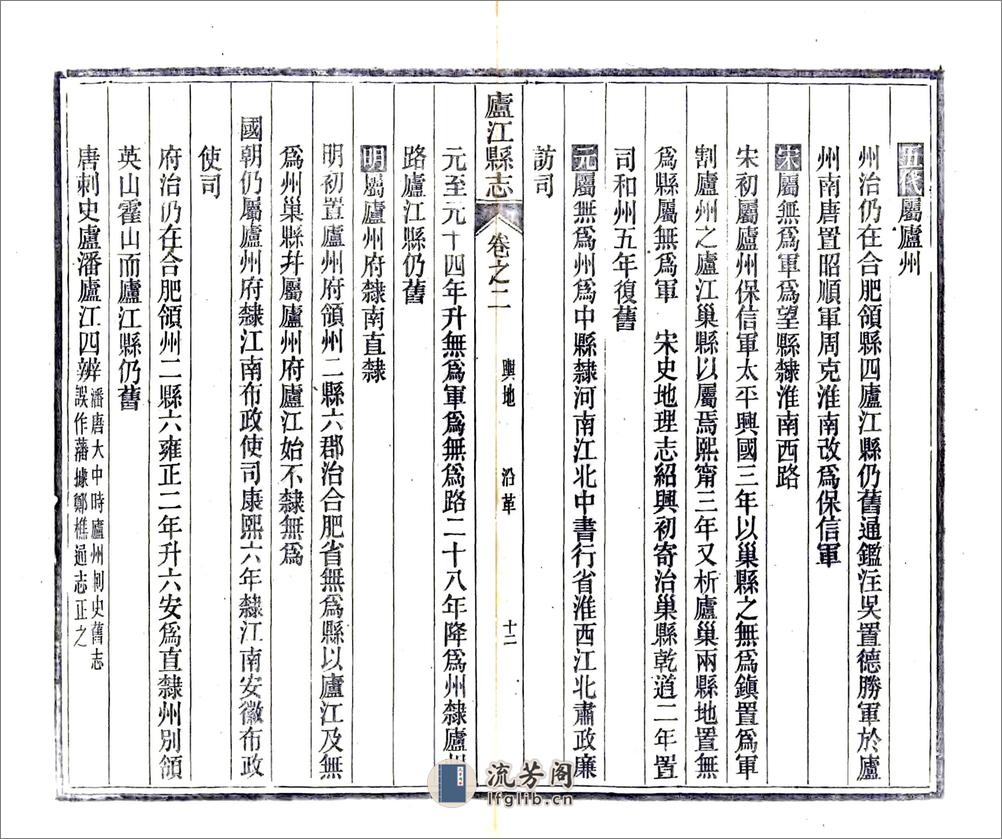 五代屬廬州
州治仍在合肥領縣四廬江縣仍舊通鑑注吳置德勝軍於廬
州南唐置昭順軍周克淮南改爲保信軍
宋屬無爲軍爲望縣隸淮南西路
宋初屬廬州保信軍太平興國三年以巢縣之無爲鎮置爲軍
割廬州之廬江巢縣以屬焉熙甯三年又析廬巢兩縣地置無
爲縣屬無爲軍　宋史地理志紹興初寄治巢縣乾道二年置
司和州五年復舊
元屬無爲州爲中縣隸河南江北中書行省淮西江北肅政廉
訪司
廬江縣志
卷之二
輿地　沿革
十二
元至元十四年升無爲軍爲無爲路二十八年降爲州隸廬州
路廬江縣仍舊
明屬廬州府隸南直隸
明初置廬州府領州二縣六郡治合肥省無爲縣以廬江及無
爲州巢縣幷屬廬州府廬江始不隸無爲
國朝仍屬廬州府隸江南布政使司康熙六年隸江南安徽布政
使司
府治仍在合肥領州二縣六雍正二年升六安爲直隸州別領
英山霍山而廬江縣仍舊
唐刺史盧潘廬江四辨潘唐大中時廬州刺史舊志
誤作藩據鄭樵通志正之
流芳阁
lfglib.cn